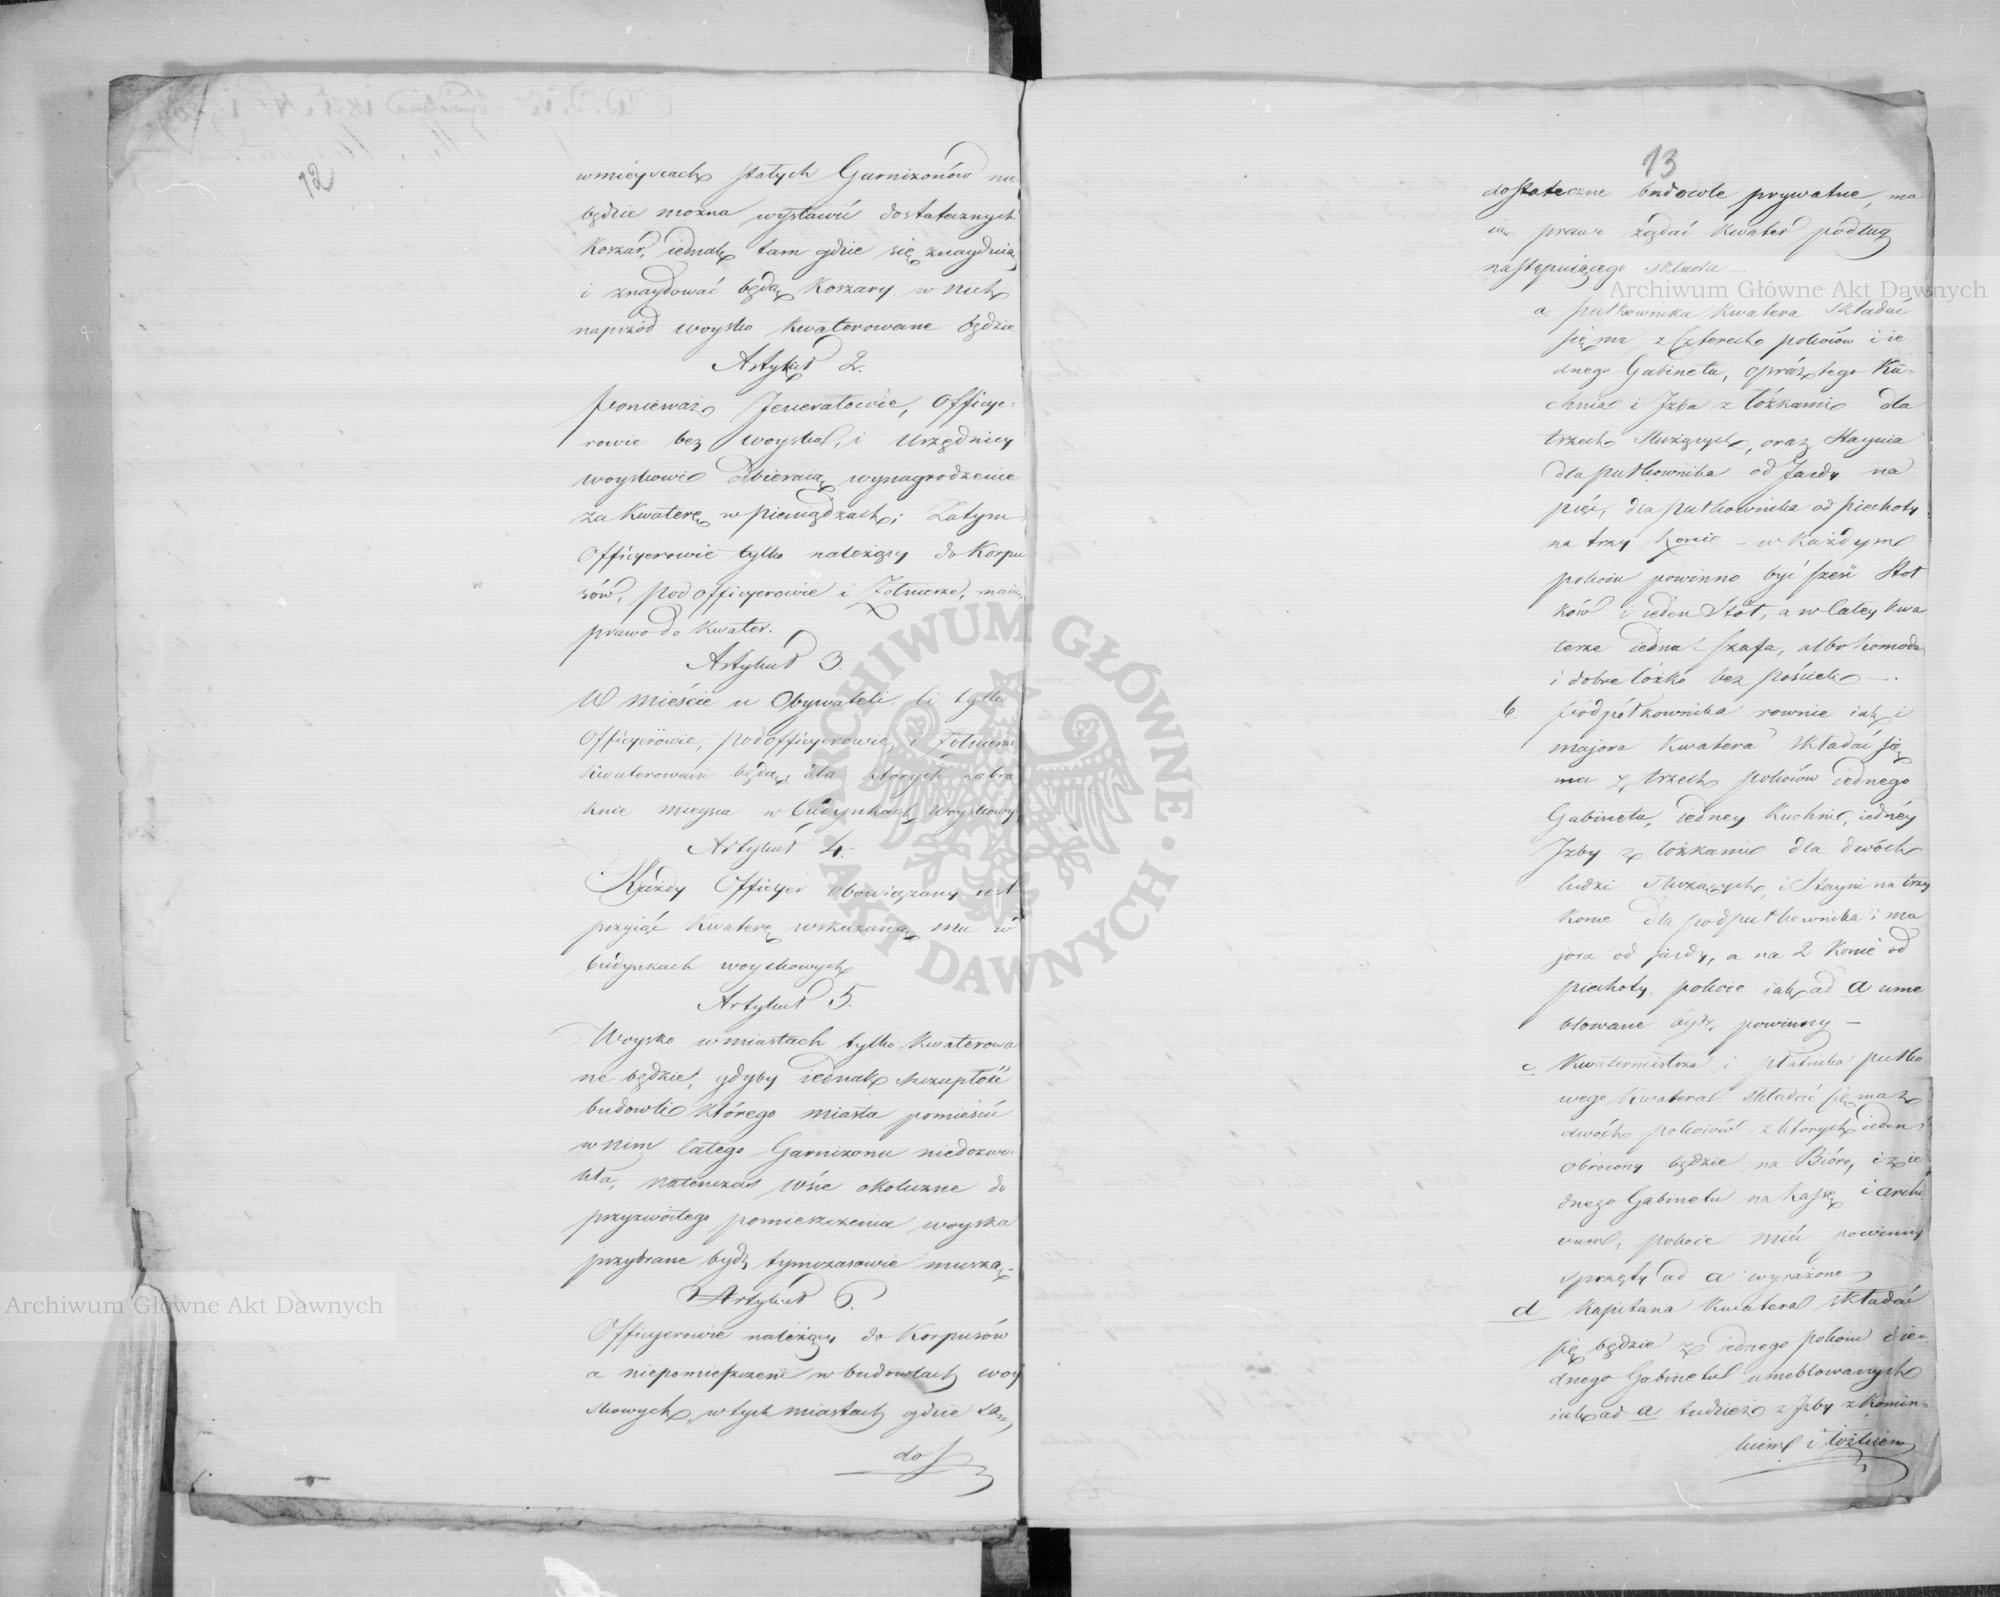 12
w mieyscach stałych Garnizonów nie
będzie można wystawić dostatecznych
Koszar, iednak tam gdzie się znayduią
i znaydować będą Koszary w nich
naprzód woysko kwaterowane będzie
Artykuł 2.
Ponieważ Jenerałowie, Officye-
rowie bez woyska, i Urzędnicy
woyskowi odbieraią wynagrodzenie
za Kwaterę w pieniądzach; Zatym
Officyerowie tylko należący do Korpu
sów, Podofficyerowie i Żołnierze, maią
prawo do Kwater.
Artykuł 3.
W mieście u Obywateli ci tylko
Officyerowie, Podofficyerowie, i Żołnierze
Kwaterowani będą, dla których zabra
knie mieysca w budynkach Woyskowy
Artykuł 4.
Każdy Officyer obowiązany iest
przyiąć Kwaterę wskazaną mu w
budynkach woyskowych
Artykuł 5.
Woysko w miastach tylko Kwaterowa
ne będzie, gdyby iednak szczupłość
budowli którego miasta pomieścić
w nim całego Garnizonu niedozwo-
liła, natenczas wsie okoliczne do
przyzwoitego pomieszczenia woyska
przybrane bydź tymczasowie muszą.
Artykuł 6.
Officyerowie należący do Korpusów
a niepomieszczeni w budowlach woy
skowych, w tych miastach gdzie są
do
13
dostateczne budowle prywatne, ma
ią prawo żądać kwater podług
następuiącego składu
a Pułkownika Kwatera składać
się ma z czterech pokoiów i ie
dnego Gabinetu, oprócz tego Ku-
chnia i Izba z łóżkami dla
trzech służących, oraz staynia
dla pułkownika od Jazdy na
pięć, dla pułkownika od piechoty
na trzy Konie – w każdym
pokoiu powinno być sześć stoł
ków i ieden stół, a w całey kwa
terze iedna szafa, albo komoda
i dobre łóżko bez pościeli –.
b Podpółkownika rownie iak i
majora Kwatera składać się
ma z trzech pokoiów iednego
Gabinetu, iedney Kuchni, iedney
Izby z łóżkami dla dwóch
ludzi służących, i Stayni na trzy
konie dla podpułkownika i ma
jora od jazdy, a na 2 Konie od
piechoty. pokoie iak ad a ume
blowane bydź powinny –
c Kwatermistrza i płatnika pułko
wego Kwatera składać się ma z
dwóch pokoiów z których ieden
obrócony będzie na Bióro, i z ie
dnego Gabinetu na Kassę i archi
wum, pokoie mieć powinny
sprzęty ad a wyrażone
d Kapitana Kwatera składać
się będzie z iednego pokoiu i ie-
dnego Gabinetu umeblowanych
iak ad a tudzież z Izby z Komin-
kiem i łóżkiem
Archiwum Główne Akt Dawnych
Archiwum Główne Akt Dawnych
ARCHIWUM GŁÓWNE · AKT DAWNYCH ·